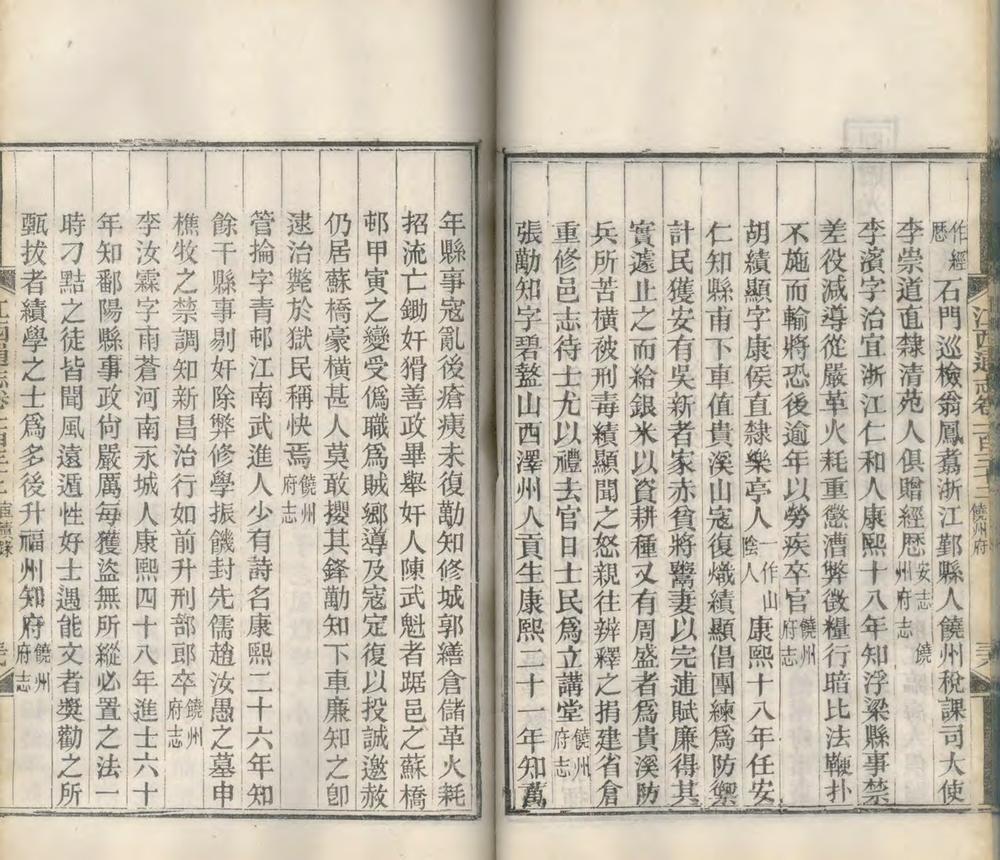 作經歷石門巡檢翁鳳翥浙江鄞縣人饒州稅課司大使
李崇道直隸清苑人俱贈經歷安志饒州府志
李濱字治宜浙江仁和人康熙十八年知浮梁縣事禁
差役減導從嚴革火耗重懲漕弊徵糧行暗比法鞭扑
不施而輸將恐後逾年以勞疾卒官饒州府志
胡績顯字康侯直隸樂亭人一作山陰人康熙十八年任安
仁知縣甫下車值貴溪山寇復熾績顯倡團練爲防禦
計民獲安有吳新者家赤貧將鬻妻以完逋賦廉得其
實遽止之而給銀米以資耕種又有周盛者爲貴溪防
兵所苦橫被刑毒績顯聞之怒親往辨釋之捐建省倉
重修邑志待士尤以禮去官日士民爲立講堂饒州府志
張勸知字碧盩山西澤州人貢生康熙二十一年知萬
江西通志卷一百三十二 饒州府
年縣事寇亂後瘡痍未復勸知修城郭繕倉儲革火耗
招流亡鋤奸猾善政畢舉奸人陳武魁者踞邑之蘇橋
邨甲寅之變受僞職爲賊鄉導及寇定復以投誠邀赦
仍居蘇橋豪橫甚人莫敢攖其鋒勸知下車廉知之卽
逮治斃於獄民稱快焉饒州府志
管掄字青邨江南武進人少有詩名康熙二十六年知
餘干縣事剔奸除弊修學振饑封先儒趙汝愚之墓申
樵牧之禁調知新昌治行如前升刑部郎卒饒州府志
李汝霖字雨蒼河南永城人康熙四十八年進士六十
年知鄱陽縣事政尙嚴厲每獲盜無所縱必置之法一
時刁黠之徒皆聞風遠遁性好士遇能文者獎勸之所
甄拔者績學之士爲多後升福州知府饒州府志